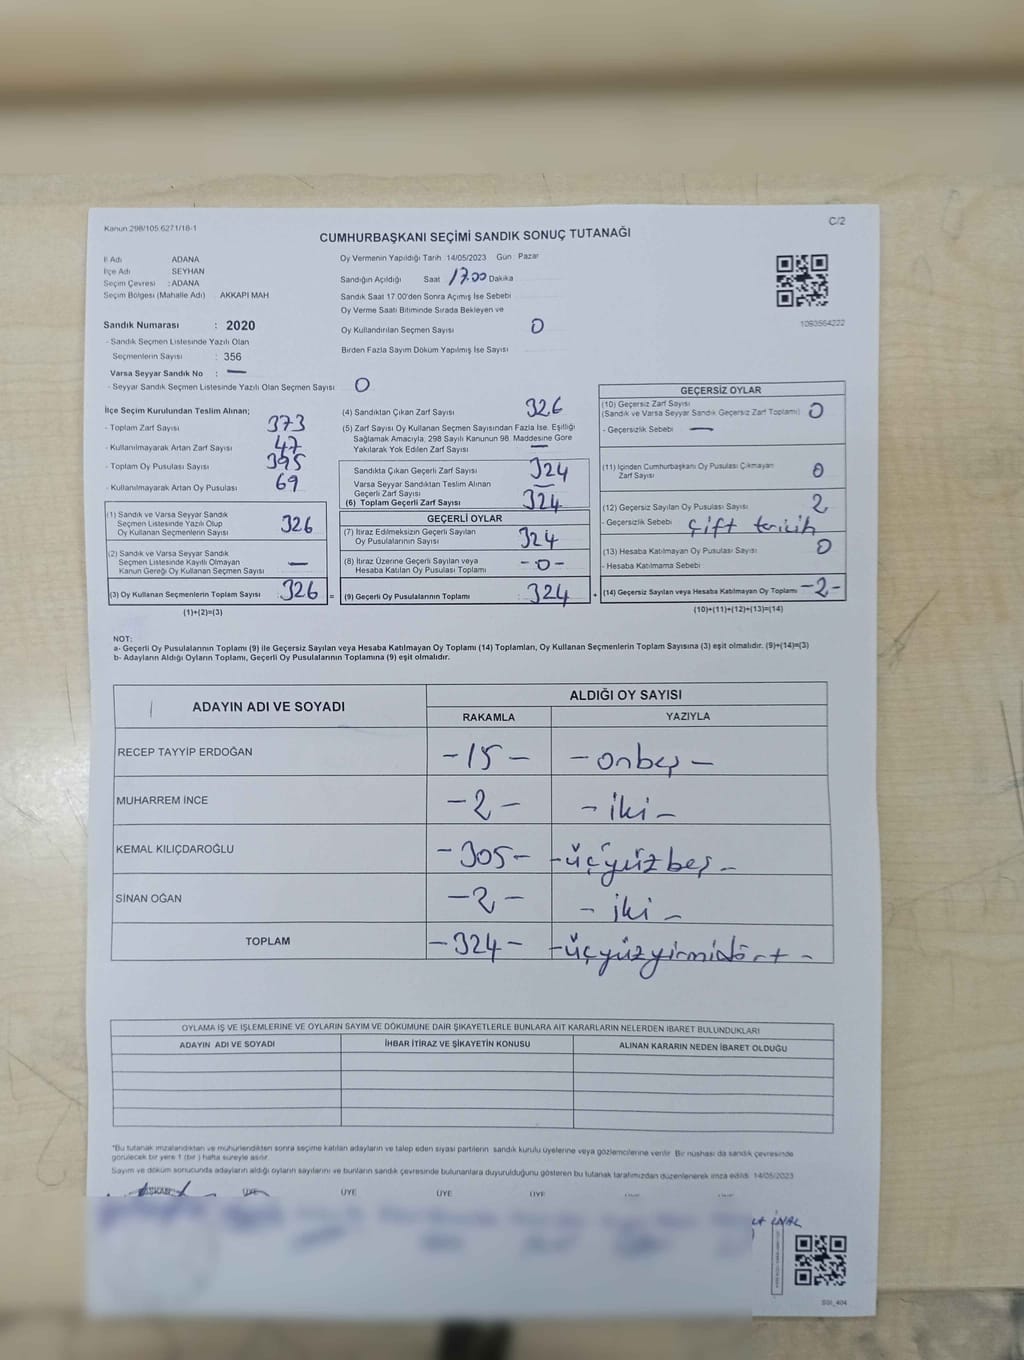 Kanun 298/105 6271/18-1
C/2
CUMHURBAŞKANI SEÇİMİ SANDIK SONUÇ TUTANAĞI
İl Adı ADANA
İlçe Adı SEYHAN
Seçim Çevresi : ADANA
Seçim Bölgesi (Mahalle Adı) AKKAPI MAH
Oy Vermenin Yapıldığı Tarih 14/05/2023 Gün : Pazar
Sandığın Açıldığı Saat 17.00 Dakika
Sandık Saat 17.00'den Sonra Açımış İse Sebebi
Oy Verme Saati Bitiminde Sırada Bekleyen ve
Oy Kullandırılan Seçmen Sayısı 0
Birden Fazla Sayım Döküm Yapılmış İse Sayısı
1093564222
Sandık Numarası : 2020
- Sandık Seçmen Listesinde Yazılı Olan
Seçmenlerin Sayısı : 356
Varsa Seyyar Sandık No : —
- Seyyar Sandık Seçmen Listesinde Yazılı Olan Seçmen Sayısı 0
İlçe Seçim Kurulundan Teslim Alınan;
- Toplam Zarf Sayısı 373
- Kullanılmayarak Artan Zarf Sayısı 47
- Toplam Oy Pusulası Sayısı 395
- Kullanılmayarak Artan Oy Pusulası 69
(1) Sandık ve Varsa Seyyar Sandık
Seçmen Listesinde Yazılı Olup
Oy Kullanan Seçmenlerin Sayısı 326
(2) Sandık ve Varsa Seyyar Sandık
Seçmen Listesinde Kayıtlı Olmayan
Kanun Gereği Oy Kullanan Seçmen Sayısı —
(3) Oy Kullanan Seçmenlerin Toplam Sayısı 326 =
(1)+(2)=(3)
(4) Sandıktan Çıkan Zarf Sayısı 326
(5) Zarf Sayısı Oy Kullanan Seçmen Sayısından Fazla İse, Eşitliği
Sağlamak Amacıyla, 298 Sayılı Kanunun 98. Maddesine Göre
Yakılarak Yok Edilen Zarf Sayısı —
Sandıkta Çıkan Geçerli Zarf Sayısı 324
Varsa Seyyar Sandıktan Teslim Alınan
Geçerli Zarf Sayısı —
(6) Toplam Geçerli Zarf Sayısı 324
GEÇERLİ OYLAR
(7) İtiraz Edilmeksizin Geçerli Sayılan
Oy Pusulalarının Sayısı 324
(8) İtiraz Üzerine Geçerli Sayılan veya
Hesaba Katılan Oy Pusulası Toplamı -0-
(9) Geçerli Oy Pusulalarının Toplamı 324 +
GEÇERSİZ OYLAR
(10) Geçersiz Zarf Sayısı
(Sandık ve Varsa Seyyar Sandık Geçersiz Zarf Toplamı) 0
- Geçersizlik Sebebi —
(11) İçinden Cumhurbaşkanı Oy Pusulası Çıkmayan
Zarf Sayısı 0
(12) Geçersiz Sayılan Oy Pusulası Sayısı 2
- Geçersizlik Sebebi çift tercih
(13) Hesaba Katılmayan Oy Pusulası Sayısı 0
- Hesaba Katılmama Sebebi
(14) Geçersiz Sayılan veya Hesaba Katılmayan Oy Toplamı -2-
(10)+(11)+(12)+(13)=(14)
NOT:
a- Geçerli Oy Pusulalarının Toplamı (9) ile Geçersiz Sayılan veya Hesaba Katılmayan Oy Toplamı (14) Toplamları, Oy Kullanan Seçmenlerin Toplam Sayısına (3) eşit olmalıdır. (9)+(14)=(3)
b- Adayların Aldığı Oyların Toplamı, Geçerli Oy Pusulalarının Toplamına (9) eşit olmalıdır.
ADAYIN ADI VE SOYADI ALDIĞI OY SAYISI
RAKAMLA YAZIYLA
RECEP TAYYİP ERDOĞAN -15- -onbeş-
MUHARREM İNCE -2- -iki-
KEMAL KILIÇDAROĞLU -305- -üçyüzbeş-
SİNAN OĞAN -2- -iki-
TOPLAM -324- -üçyüzyirmidört-
OYLAMA İŞ VE İŞLEMLERİNE VE OYLARIN SAYIM VE DÖKÜMÜNE DAİR ŞİKAYETLERLE BUNLARA AİT KARARLARIN NELERDEN İBARET BULUNDUKLARI
ADAYIN ADI VE SOYADI İHBAR İTİRAZ VE ŞİKAYETİN KONUSU ALINAN KARARIN NEDEN İBARET OLDUĞU
*Bu tutanak imzalandıktan ve mühürlendikten sonra seçime katılan adayların ve talep eden siyasi partilerin sandık kurulu üyelerine veya gözlemcilerine verilir. Bir nüshası da sandık çevresinde
görülecek bir yere 1 (bir ) hafta süreyle asılır.
Sayım ve döküm sonucunda adayların aldığı oyların sayılarını ve bunların sandık çevresinde bulunanlara duyurulduğunu gösteren bu tutanak tarafımızdan düzenlenerek imza edildi. 14/05/2023
BAŞKAN ÜYE ÜYE ÜYE ÜYE